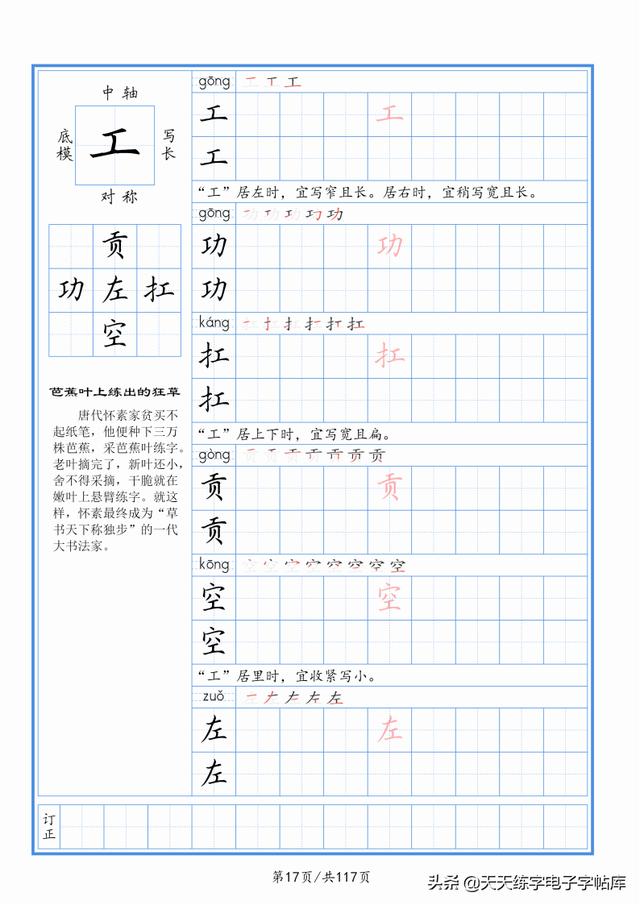 中轴
底模
工
写长
对称
贡
功 左 扛
空
芭蕉叶上练出的狂草
唐代怀素家贫买不
起纸笔，他便种下三万
株芭蕉，采芭蕉叶练字。
老叶摘完了，新叶还小，
舍不得采摘，干脆就在
嫩叶上悬臂练字。就这
样，怀素最终成为“草
书天下称独步”的一代
大书法家。
gōng 一 丅 工
工 工
工
“工”居左时，宜写窄且长。居右时，宜稍写宽且长。
gōng
功 功
功
káng
扛 扛
扛
“工”居上下时，宜写宽且扁。
gòng
贡 贡
贡
kōng
空 空
空
“工”居里时，宜收紧写小。
zuǒ
左 左
左
订正
第17页/共117页
头条 @天天练字电子字帖库